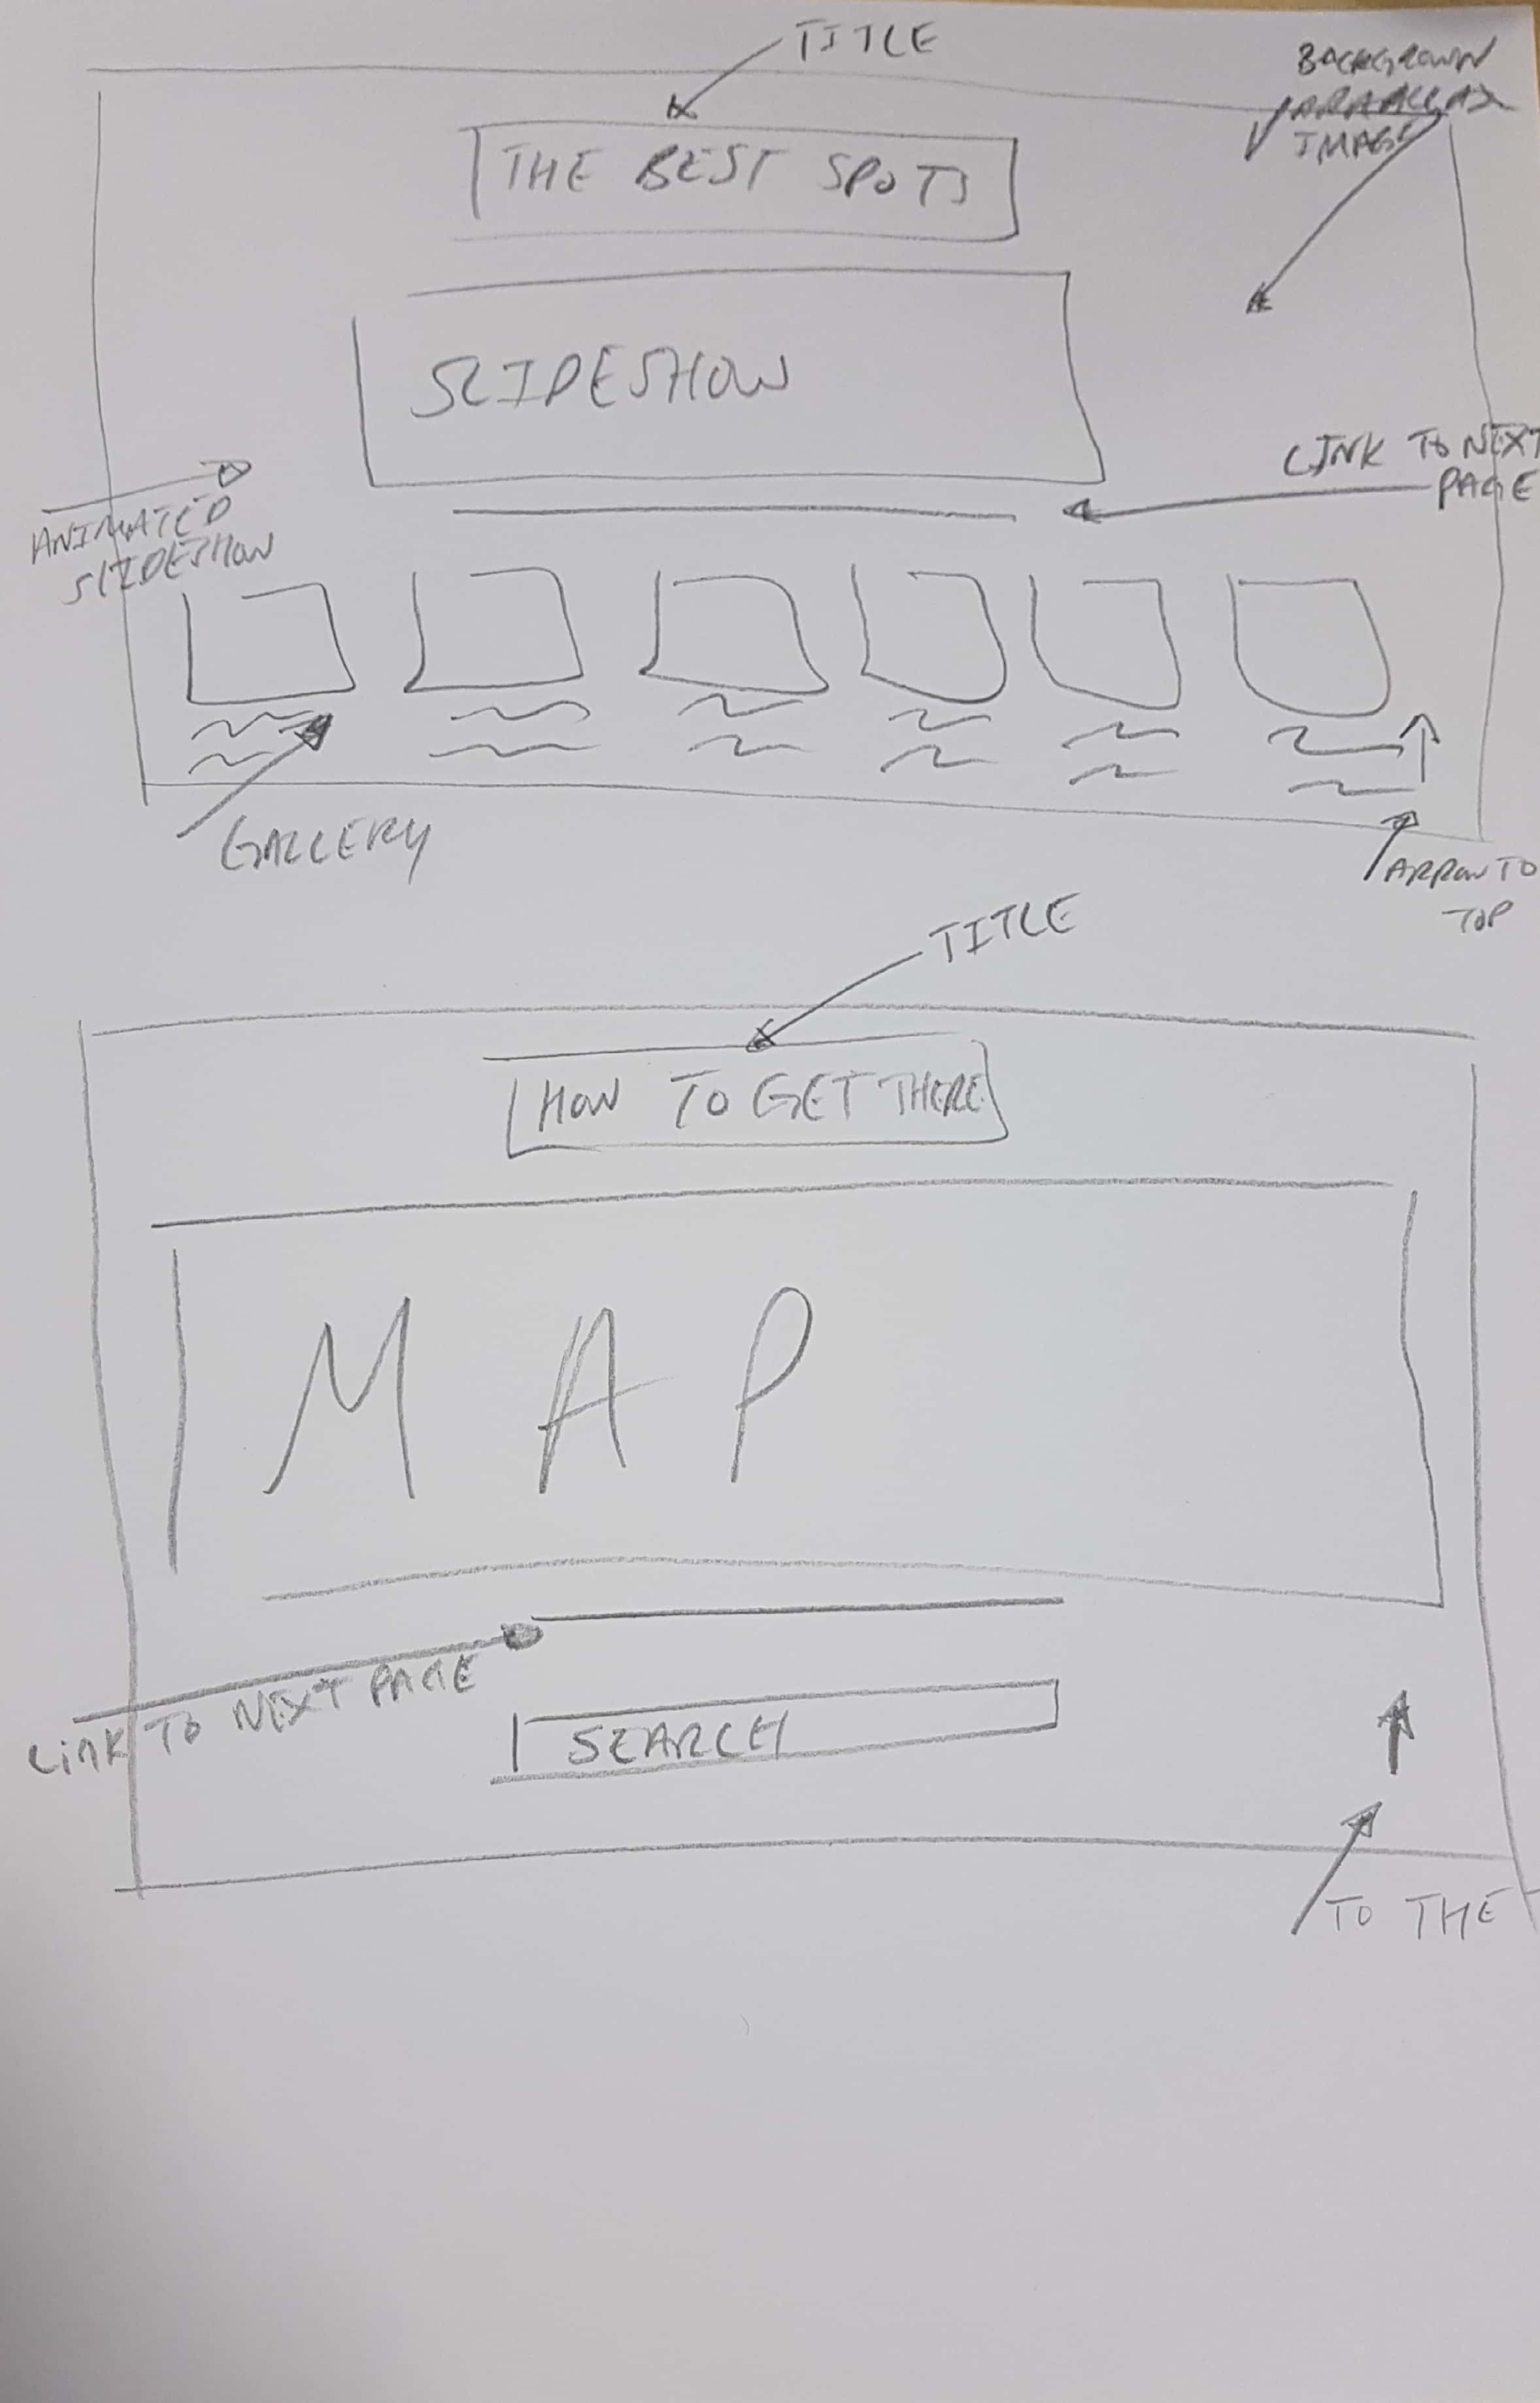 TITLE
BACKGROWN
PARAALLAX
IMAGE
THE BEST SPOTS
SLIDESHOW
LINK TO NEXT
PAGE
ANIMATED
SLIDESHOW
GALLERY
ARROW TO
TOP
TITLE
HOW TO GET THERE
MAP
LINK TO NEXT PAGE
SEARCH
TO THE